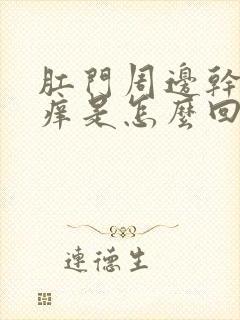 肛門周邊幹
痒是怎麼回
連德生